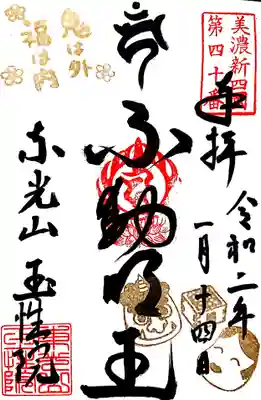 美濃新四国
第四十番
奉拝
令和二年
一月十四日
不動明王
鬼は外
福は内
東光山 玉性院